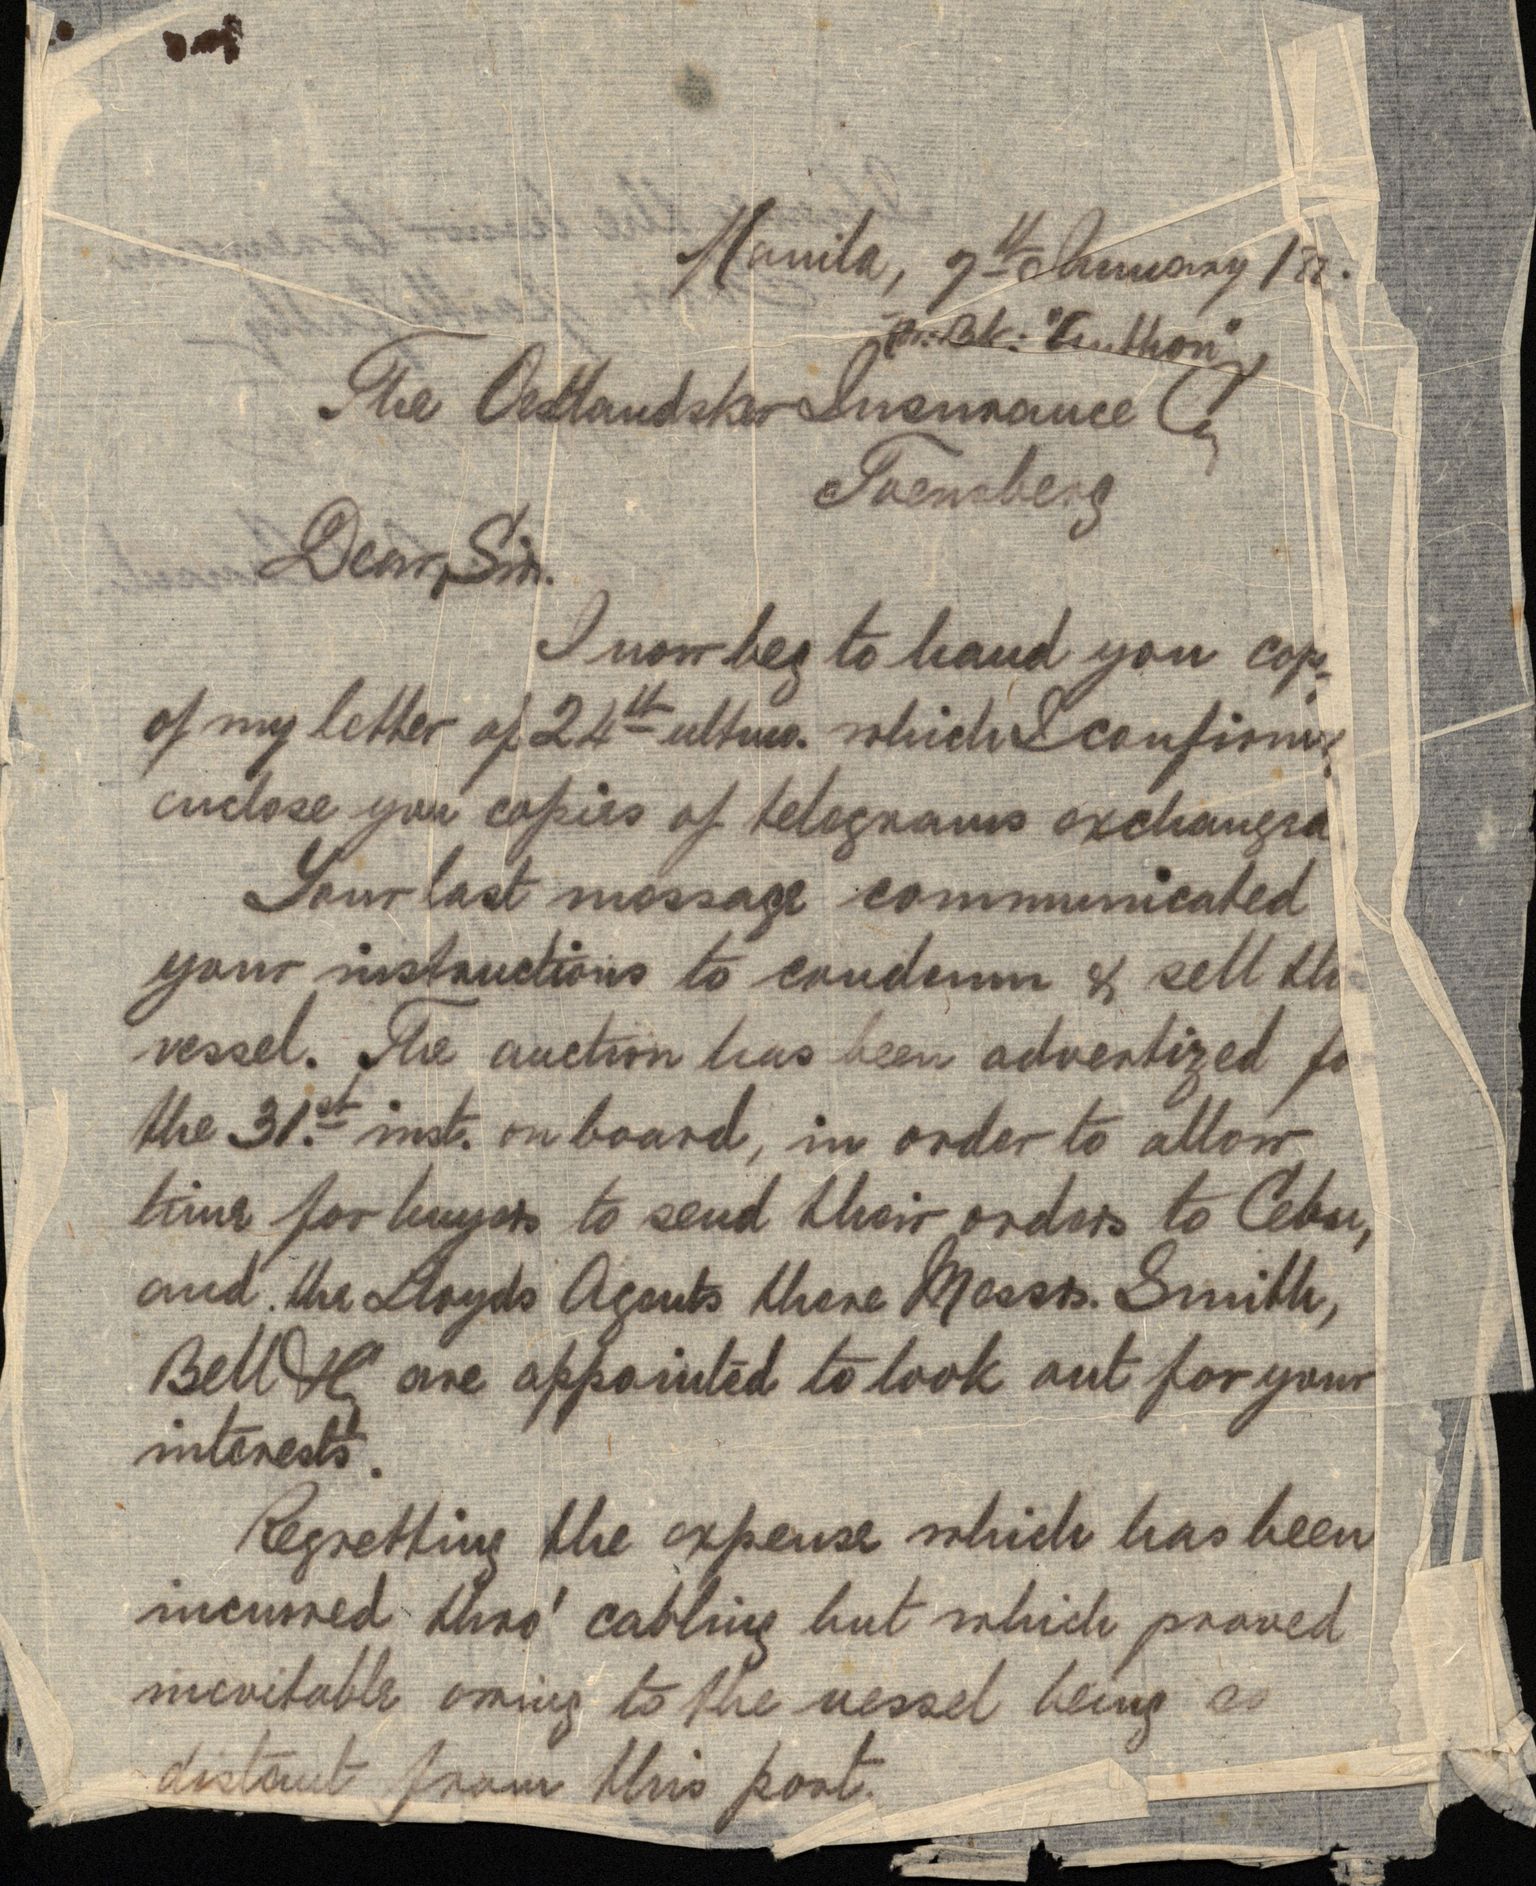 Manila, 9th January 18
Nr. Bk: "Euthon"
The Oestlandske Insurance Cy
Toensberg
Dear Sir.
I now beg to hand you cop
of my letter of 24th ultmo. which I confirm &
enclose you copies of telegrams exchanged
Your last message communicated
your instructions to condemn & sell the
vessel. The auction has been advertized fo
the 31st. inst. on board, in order to allow
time for buyers to send their orders to Cebu,
and the Lloyds Agents there Messrs. Smith,
Bell & Cy are appointed to look out for your
interests.
Regretting the expense which has been
incurred thro' cabling but which proved
inevitable owing to the vessel being so
distant from this port.